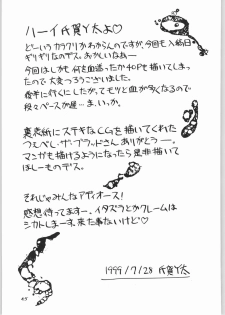 ハーイ氏賀Y太よ♡
どーいうカラクリかわからんのですが、今回も入稿日
ギリギリなのデス。おかしいなぁ…
今回はしかも何を血迷ったか40Pも描いてしまっ
たので大変つろうございました。
後半に行くにしたが、てモツと血が多くなるので
段々ペースが遅…ま、いっか。
裏表紙にステキなCGを描いてくれた
つぇぺし・ザ・ブラッドさんありがとうー。
マンガも描けるようになったら是非描いて
ほしーものデス。
それじゃみんなアディオース!
感想待ってますー。イタズラとかクレームは
シカトしまーす。来た事ないけど♡
1999/7/28 氏賀Y太